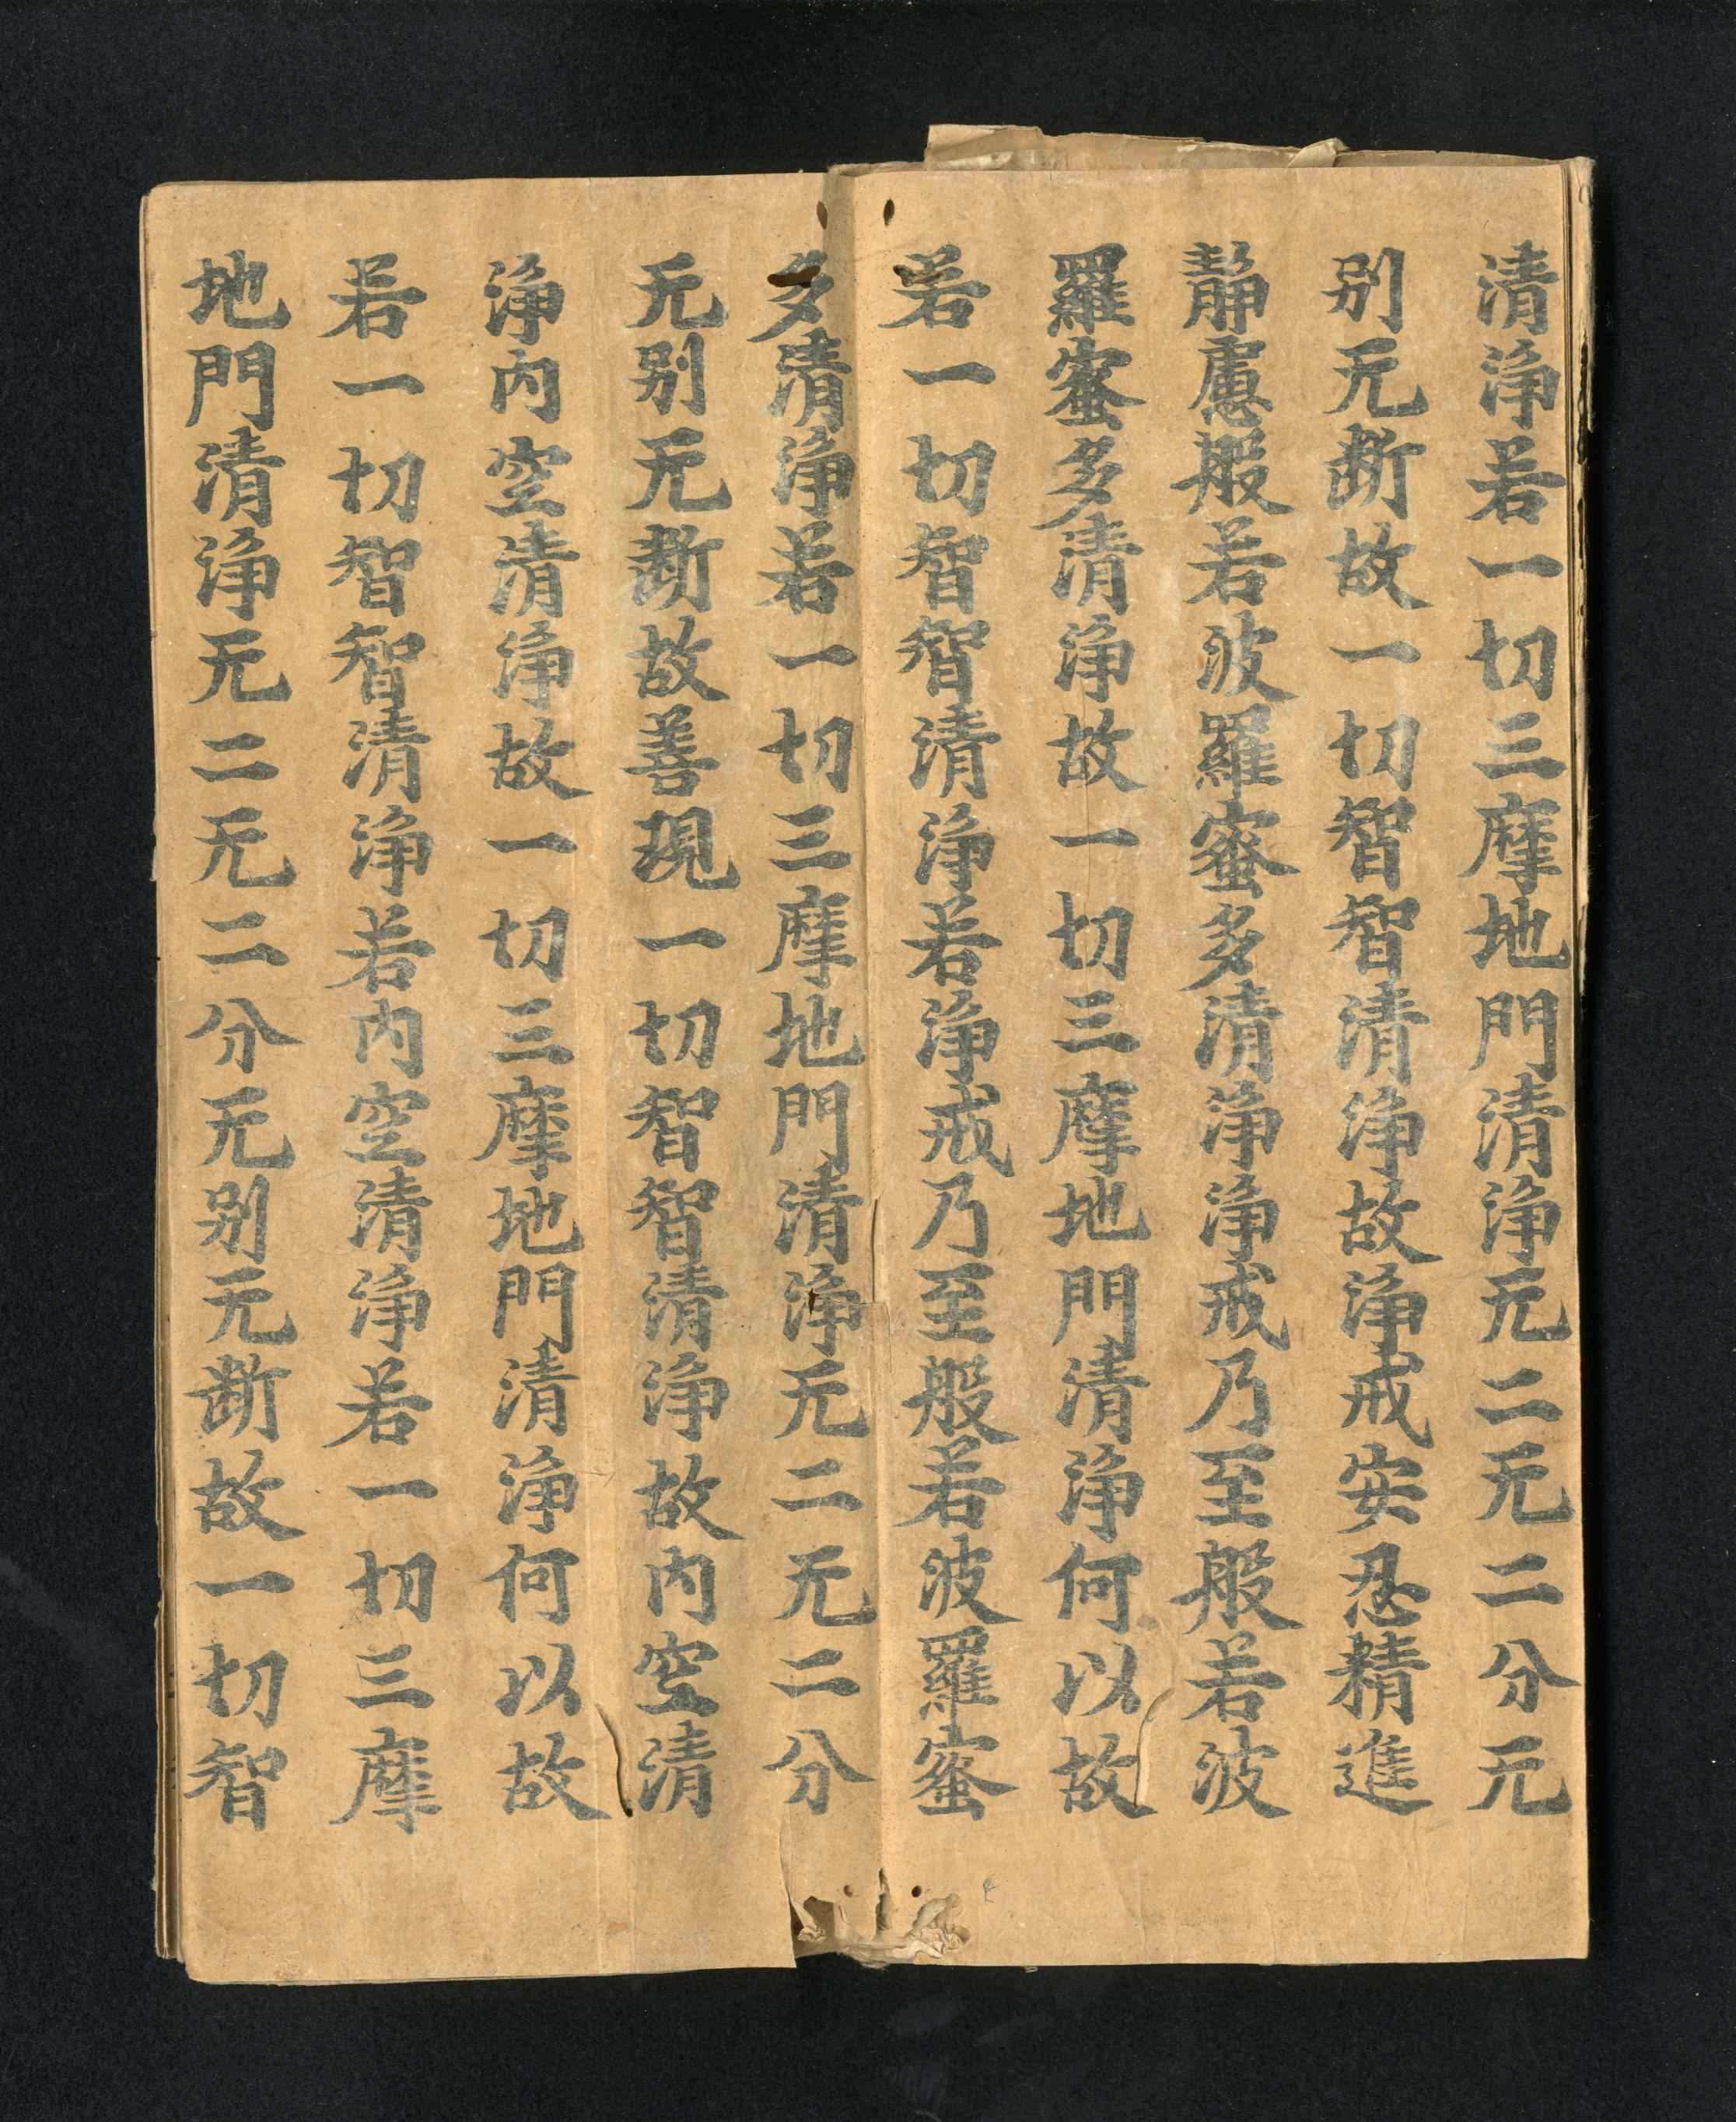 清淨若一切三摩地門清淨无二无二分无
别无断故一切智智清淨故淨戒安忍精進
靜慮般若波羅蜜多清淨淨戒乃至般若波
羅蜜多清淨故一切三摩地門清淨何以故
若一切智智清淨若淨戒乃至般若波羅蜜
多清淨若一切三摩地門清淨无二无二分
无别无断故善現一切智智清淨故内空清
淨内空清淨故一切三摩地門清淨何以故
若一切智智清淨若内空清淨若一切三摩
地門清淨无二无二分无别无断故一切智